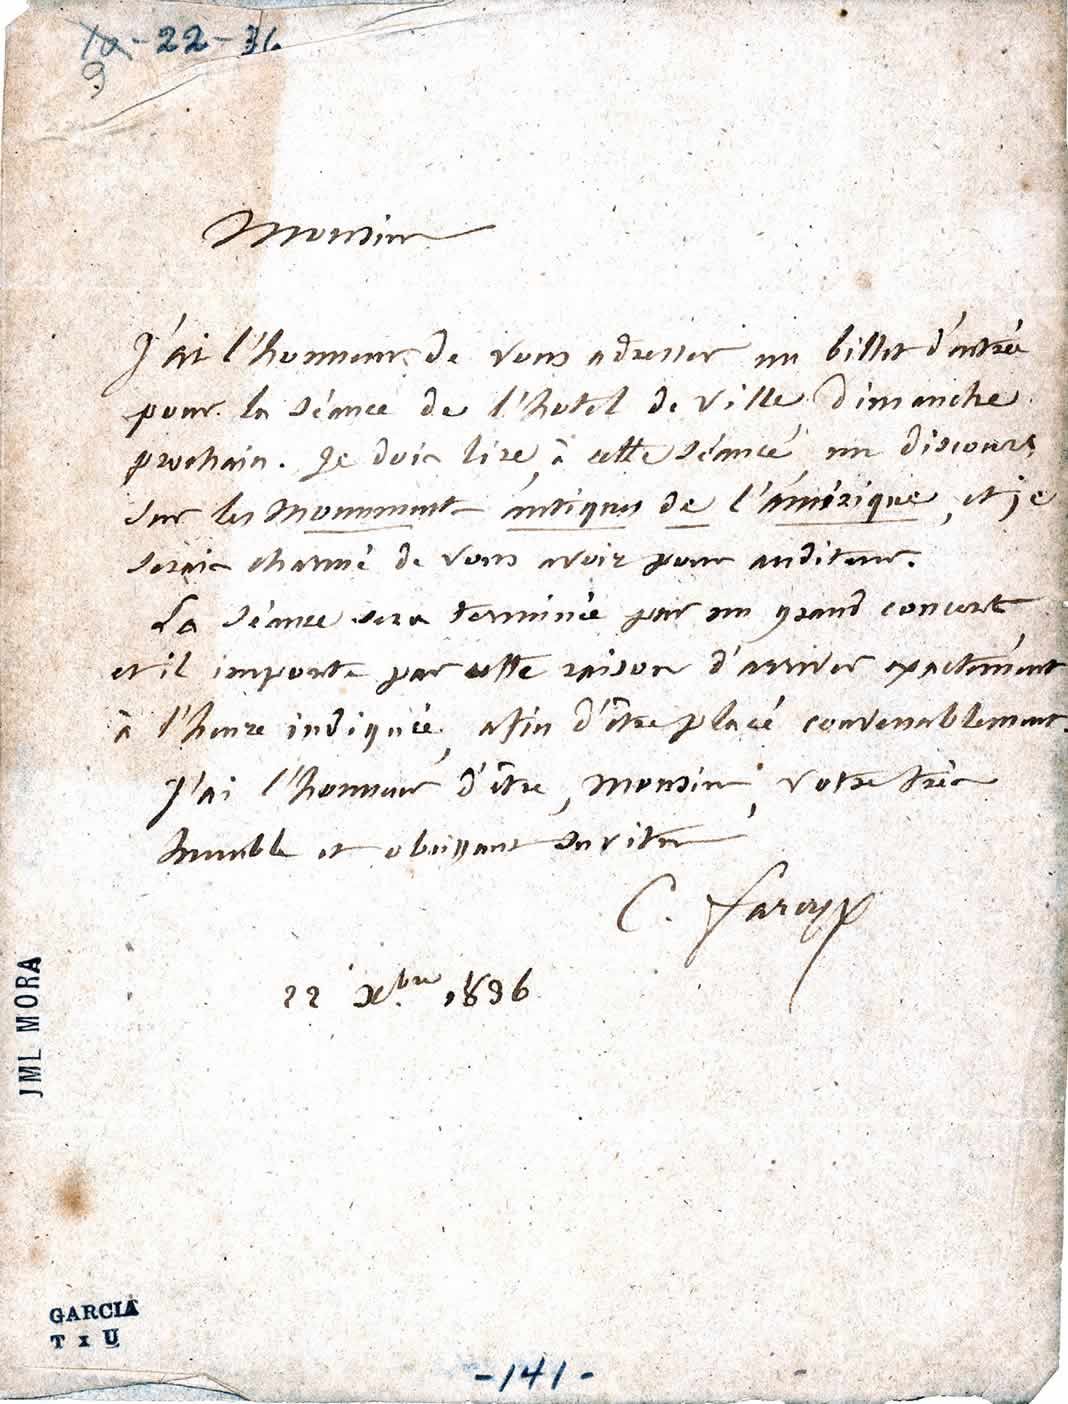 -22-36
9
Monsieur
J'ai l'honneur de vous adresser un billet d'entrée
pour la séance de l'hotel de Ville Dimanche
prochain. Je dois lire, à cette séance, un discours
sur les Monuments antiques de l'amérique, et je
serais charmé de vous avoir pour auditeur.
La séance sera terminée par un grand concert
et il importe par cette raison d'arriver exactement
à l'heure indiquée, afin d'être placé convenablement.
J'ai l'honneur d'être, Monsieur, votre très
humble et obéissant serviteur
C. farcy
22 Xbre 1836
JML MORA
GARCIA
T x U
-141-